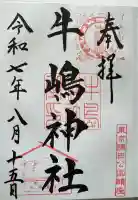 奉拝
牛嶋神社
令和七年八月十五日